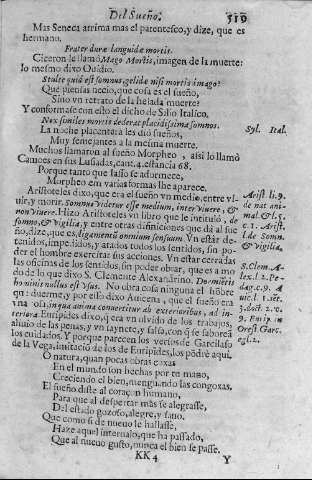 Del Sueño. 519
Mas Seneca atrima mas el parentesco, y dize, que es
hermano.
Frater duræ languidæ mortis.
Ciceron le llamó Mago Mortis, imagen de la muerte:
lo mesmo dixo Ouidio.
Stulte quid est somnus, gelidæ nisi mortis imago?
Que piensas necio, que cosa es el sueño,
Sino vn retrato de la helada muerte?
Y conformase con esto el dicho de Silio Italico.
Nox similes mortis dederat placidissima somnos.
La noche placentera les dió sueños, Syl. Ital.
Muy semejantes a la mesma muerte.
Muchos llamaron al sueño Morpheo, aisi lo llamò
Camoes en sus Lusiadas, cant. 4. estancia 68.
Porque tanto que lasso se adormece,
Morpheo em varias formas lhe aparece.
Aristoteles dixo, que era el sueño vn medio, entre vi- Arist. li. 9.
uir, y morir. Somnus videtur esse medium, inter viuere, & de nat ani-
non viuere. Hizo Aristoteles vn libro que le intituló, de mal. & l. 5.
somno, & vigilia, y entre otras difiniciones que dà al sue c. 1. Arist.
ño, dize, que es, ligamentũ omnium sensuum. Vn estàr de- l. de Somn.
tenidos, impedidos, y atados todos los sentidos, sin po- & vigilia,
der el hombre exercitar sus acciones. Vn estàr cerradas
las oficinas de los sentidos, sin poder obrar, que es a mo- S. Clem. A-
do de lo que dixo S. Clemente Alexandrino. Dormiẽtis lex. l. 2. Pe-
hominis nullus est vsus. No obra cosa ninguna el hõbre dag. c. 9. A
que duerme, y por esso dixo Auicena, que el sueño era uic. l. 1. ser.
vna in qua anima conuertitur ab exterioribus, ad in- 3. doct. 2. c.
teriora. Euripides dixo, q̃ era vn oluido de los trabajos, 9. Eurip. in
aliuio de las penas, y vn saynete, y salsa, con q̃ se saboreã Orest. Garc.
los cuidados. Y porque parecen los versos de Garcilaso egl. 2.
de la Vega, imitaciõ de los de Euripides, los põdrè aqui.
O natura, quan pocas obras coxas
En el mundo son hechas por tu mano,
Creciendo el bien, menguando las congoxas.
El sueño diste al coraçon humano,
Para que al despertar màs se alegrasse,
Del estado gozoso, alegre, y sano.
Que como si de nueuo le hallasse,
Haze aquel interualo, que ha passado,
Que al nueuo gusto, nunca el bien se passe.
KK 4 Y